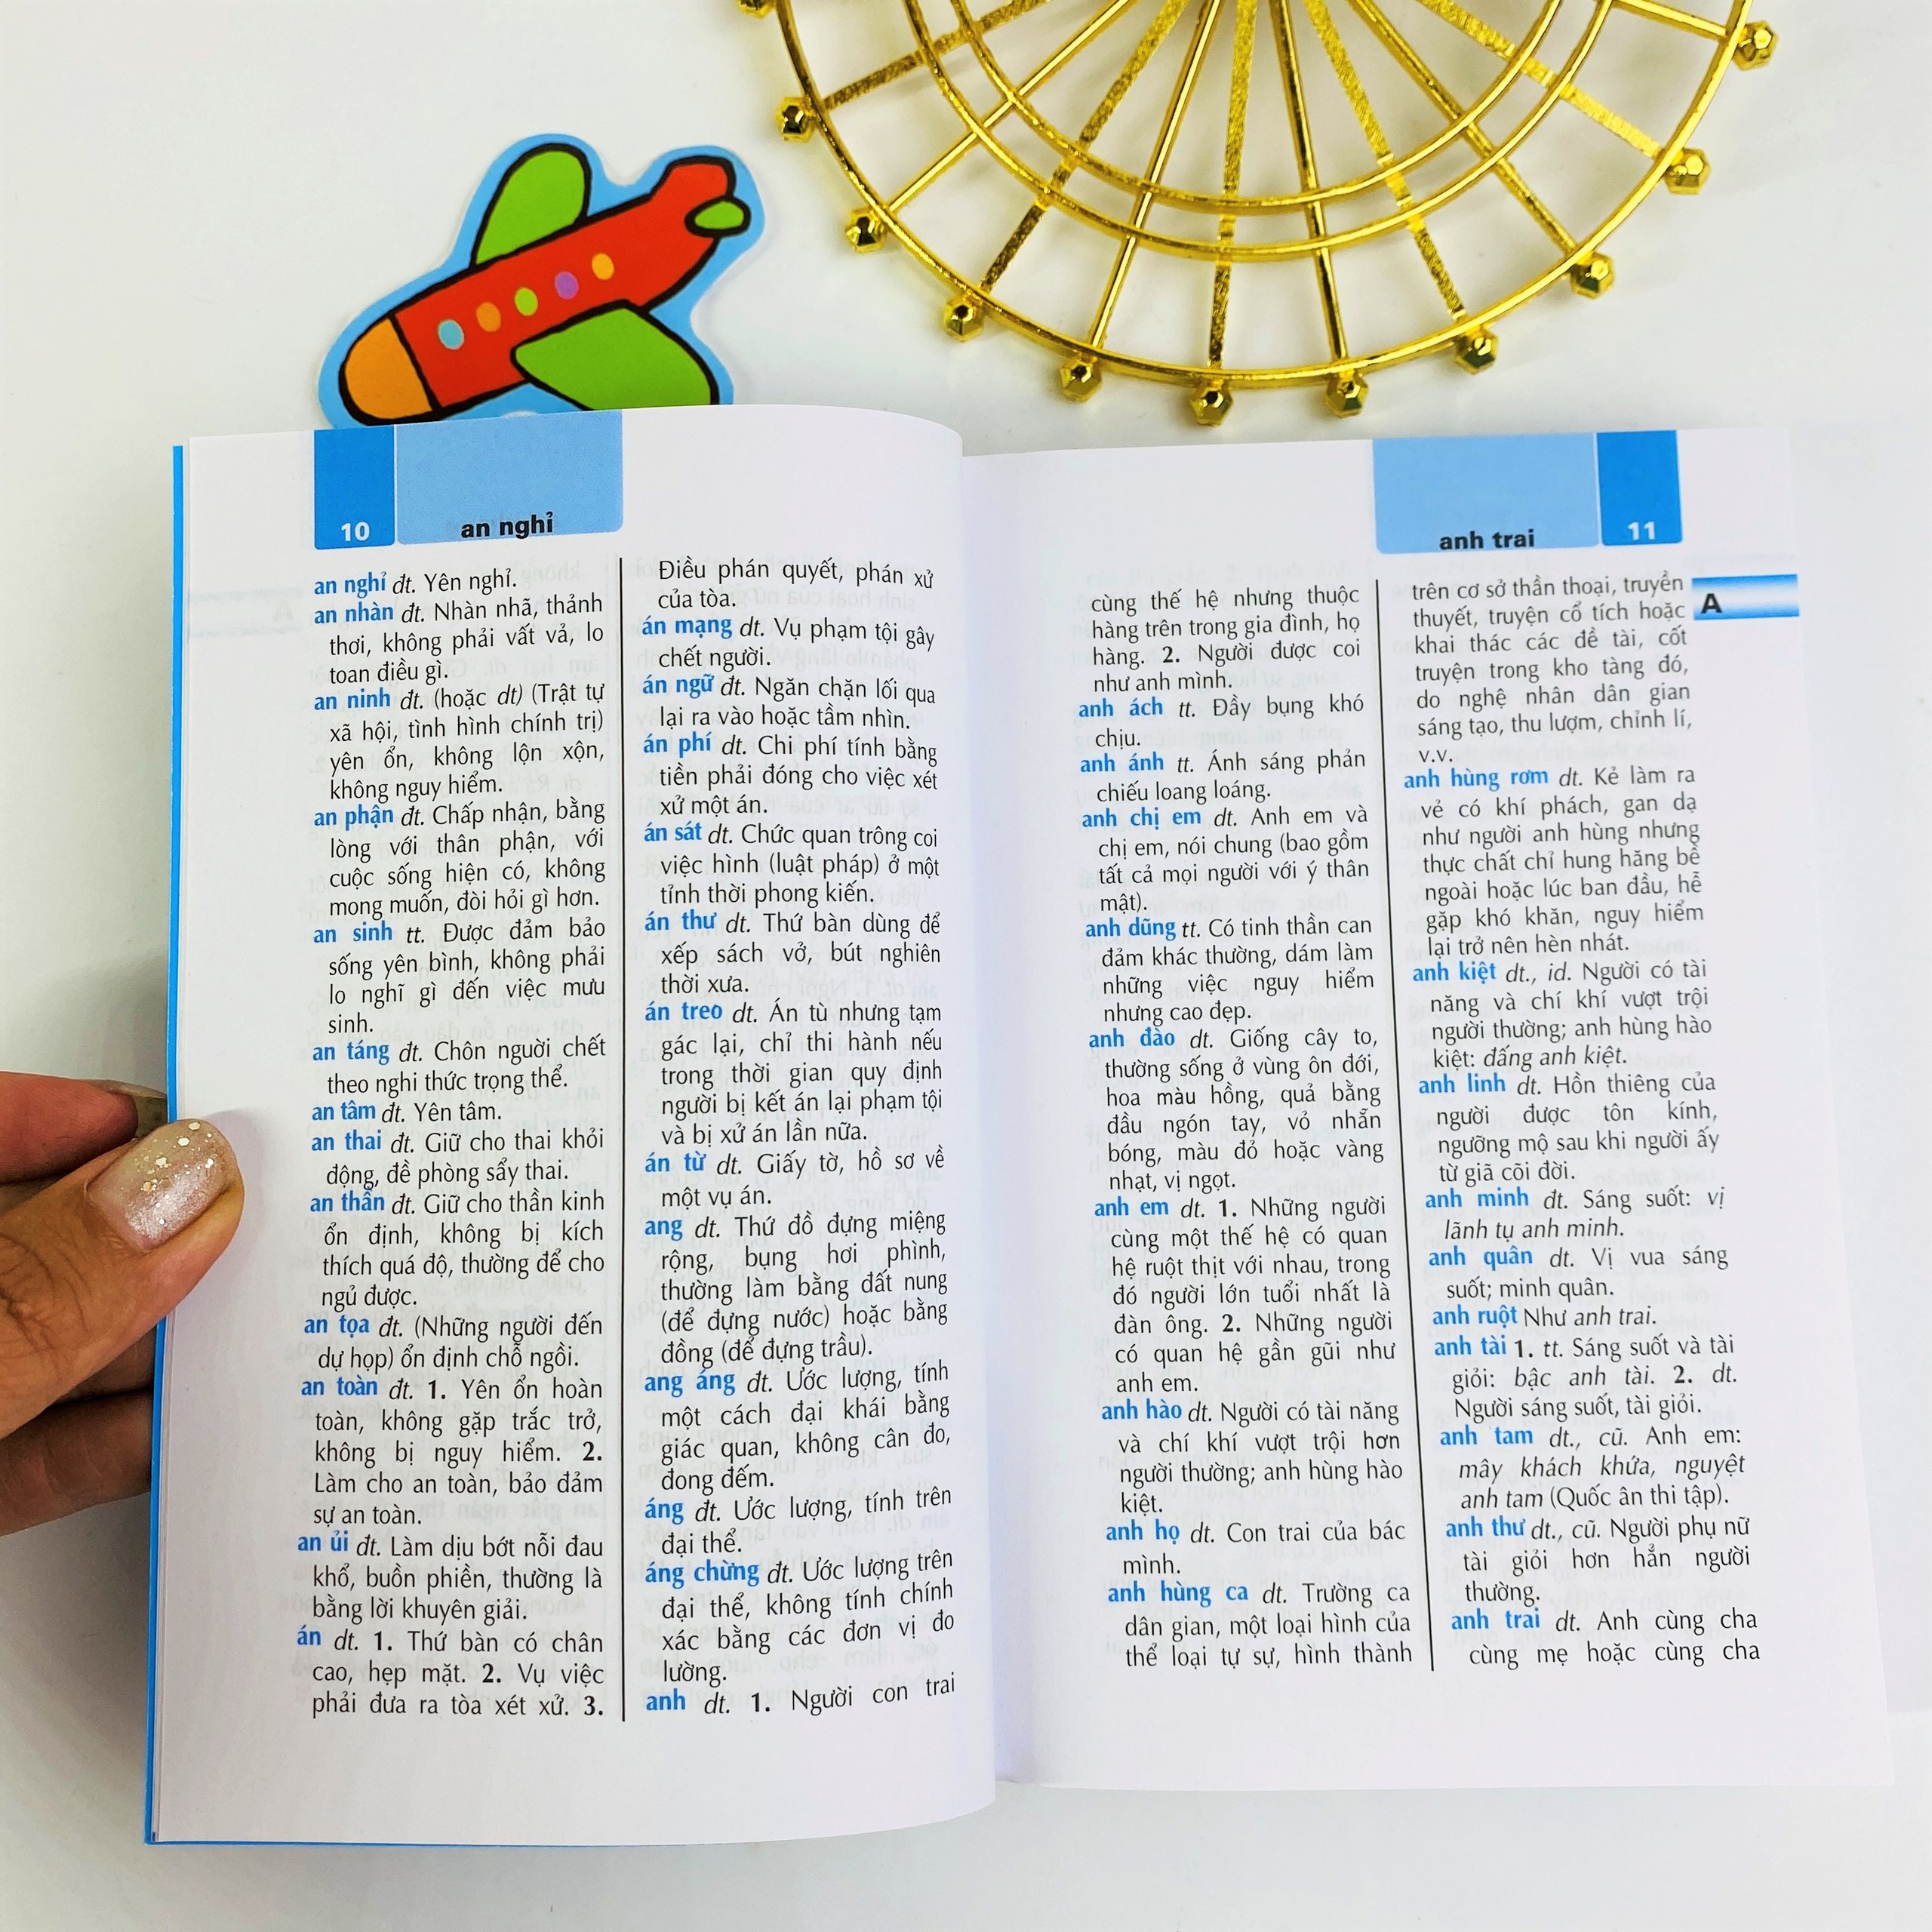 10
an nghỉ
an nghỉ đt. Yên nghỉ.
an nhàn đt. Nhàn nhã, thảnh
thơi, không phải vất vả, lo
toan điều gì.
an ninh đt. (hoặc dt) (Trật tự
xã hội, tình hình chính trị)
yên ổn, không lộn xộn,
không nguy hiểm.
an phận đt. Chấp nhận, bằng
lòng với thân phận, với
cuộc sống hiện có, không
mong muốn, đòi hỏi gì hơn.
an sinh tt. Được đảm bảo
sống yên bình, không phải
lo nghĩ gì đến việc mưu
sinh.
an táng đt. Chôn người chết
theo nghi thức trọng thể.
an tâm đt. Yên tâm.
an thai đt. Giữ cho thai khỏi
động, đề phòng sẩy thai.
an thần đt. Giữ cho thần kinh
ổn định, không bị kích
thích quá độ, thường để cho
ngủ được.
an tọa đt. (Những người đến
dự họp) ổn định chỗ ngồi.
an toàn đt. 1. Yên ổn hoàn
toàn, không gặp trắc trở,
không bị nguy hiểm. 2.
Làm cho an toàn, bảo đảm
sự an toàn.
an ủi đt. Làm dịu bớt nỗi đau
khổ, buồn phiền, thường là
bằng lời khuyên giải.
án dt. 1. Thứ bàn có chân
cao, hẹp mặt. 2. Vụ việc
phải đưa ra tòa xét xử. 3.
Điều phán quyết, phán xử
của tòa.
án mạng dt. Vụ phạm tội gây
chết người.
án ngữ đt. Ngăn chặn lối qua
lại ra vào hoặc tầm nhìn.
án phí dt. Chi phí tính bằng
tiền phải đóng cho việc xét
xử một án.
án sát dt. Chức quan trông coi
việc hình (luật pháp) ở một
tỉnh thời phong kiến.
án thư dt. Thứ bàn dùng để
xếp sách vở, bút nghiên
thời xưa.
án treo dt. Án tù nhưng tạm
gác lại, chỉ thi hành nếu
trong thời gian quy định
người bị kết án lại phạm tội
và bị xử án lần nữa.
án từ dt. Giấy tờ, hồ sơ về
một vụ án.
ang dt. Thứ đồ đựng miệng
rộng, bụng hơi phình,
thường làm bằng đất nung
(để đựng nước) hoặc bằng
đồng (để đựng trầu).
ang áng đt. Ước lượng, tính
một cách đại khái bằng
giác quan, không cân đo,
đong đếm.
áng đt. Ước lượng, tính trên
đại thể.
áng chừng đt. Ước lượng trên
đại thể, không tính chính
xác bằng các đơn vị đo
lường.
anh dt. 1. Người con trai
anh trai
11
A
cùng thế hệ nhưng thuộc
hàng trên trong gia đình, họ
hàng. 2. Người được coi
như anh mình.
anh ách tt. Đầy bụng khó
chịu.
anh ánh tt. Ánh sáng phản
chiếu loang loáng.
anh chị em dt. Anh em và
chị em, nói chung (bao gồm
tất cả mọi người với ý thân
mật).
anh dũng tt. Có tinh thần can
đảm khác thường, dám làm
những việc nguy hiểm
nhưng cao đẹp.
anh đào dt. Giống cây to,
thường sống ở vùng ôn đới,
hoa màu hồng, quả bằng
đầu ngón tay, vỏ nhẵn
bóng, màu đỏ hoặc vàng
nhạt, vị ngọt.
anh em dt. 1. Những người
cùng một thế hệ có quan
hệ ruột thịt với nhau, trong
đó người lớn tuổi nhất là
đàn ông. 2. Những người
có quan hệ gần gũi như
anh em.
anh hào dt. Người có tài năng
và chí khí vượt trội hơn
người thường; anh hùng hào
kiệt.
anh họ dt. Con trai của bác
mình.
anh hùng ca dt. Trường ca
dân gian, một loại hình của
thể loại tự sự, hình thành
trên cơ sở thần thoại, truyền
thuyết, truyện cổ tích hoặc
khai thác các đề tài, cốt
truyện trong kho tàng đó,
do nghệ nhân dân gian
sáng tạo, thu lượm, chỉnh lí,
v.v.
anh hùng rơm dt. Kẻ làm ra
vẻ có khí phách, gan dạ
như người anh hùng nhưng
thực chất chỉ hung hăng bề
ngoài hoặc lúc ban đầu, hễ
gặp khó khăn, nguy hiểm
lại trở nên hèn nhát.
anh kiệt dt., id. Người có tài
năng và chí khí vượt trội
người thường; anh hùng hào
kiệt: đấng anh kiệt.
anh linh dt. Hồn thiêng của
người được tôn kính,
ngưỡng mộ sau khi người ấy
từ giã cõi đời.
anh minh đt. Sáng suốt: vị
lãnh tụ anh minh.
anh quân dt. Vị vua sáng
suốt; minh quân.
anh ruột Như anh trai.
anh tài 1. tt. Sáng suốt và tài
giỏi: bậc anh tài. 2. dt.
Người sáng suốt, tài giỏi.
anh tam dt., cũ. Anh em:
mây khách khứa, nguyệt
anh tam (Quốc ân thi tập).
anh thư dt., cũ. Người phụ nữ
tài giỏi hơn hẳn người
thường.
anh trai dt. Anh cùng cha
cùng mẹ hoặc cùng cha